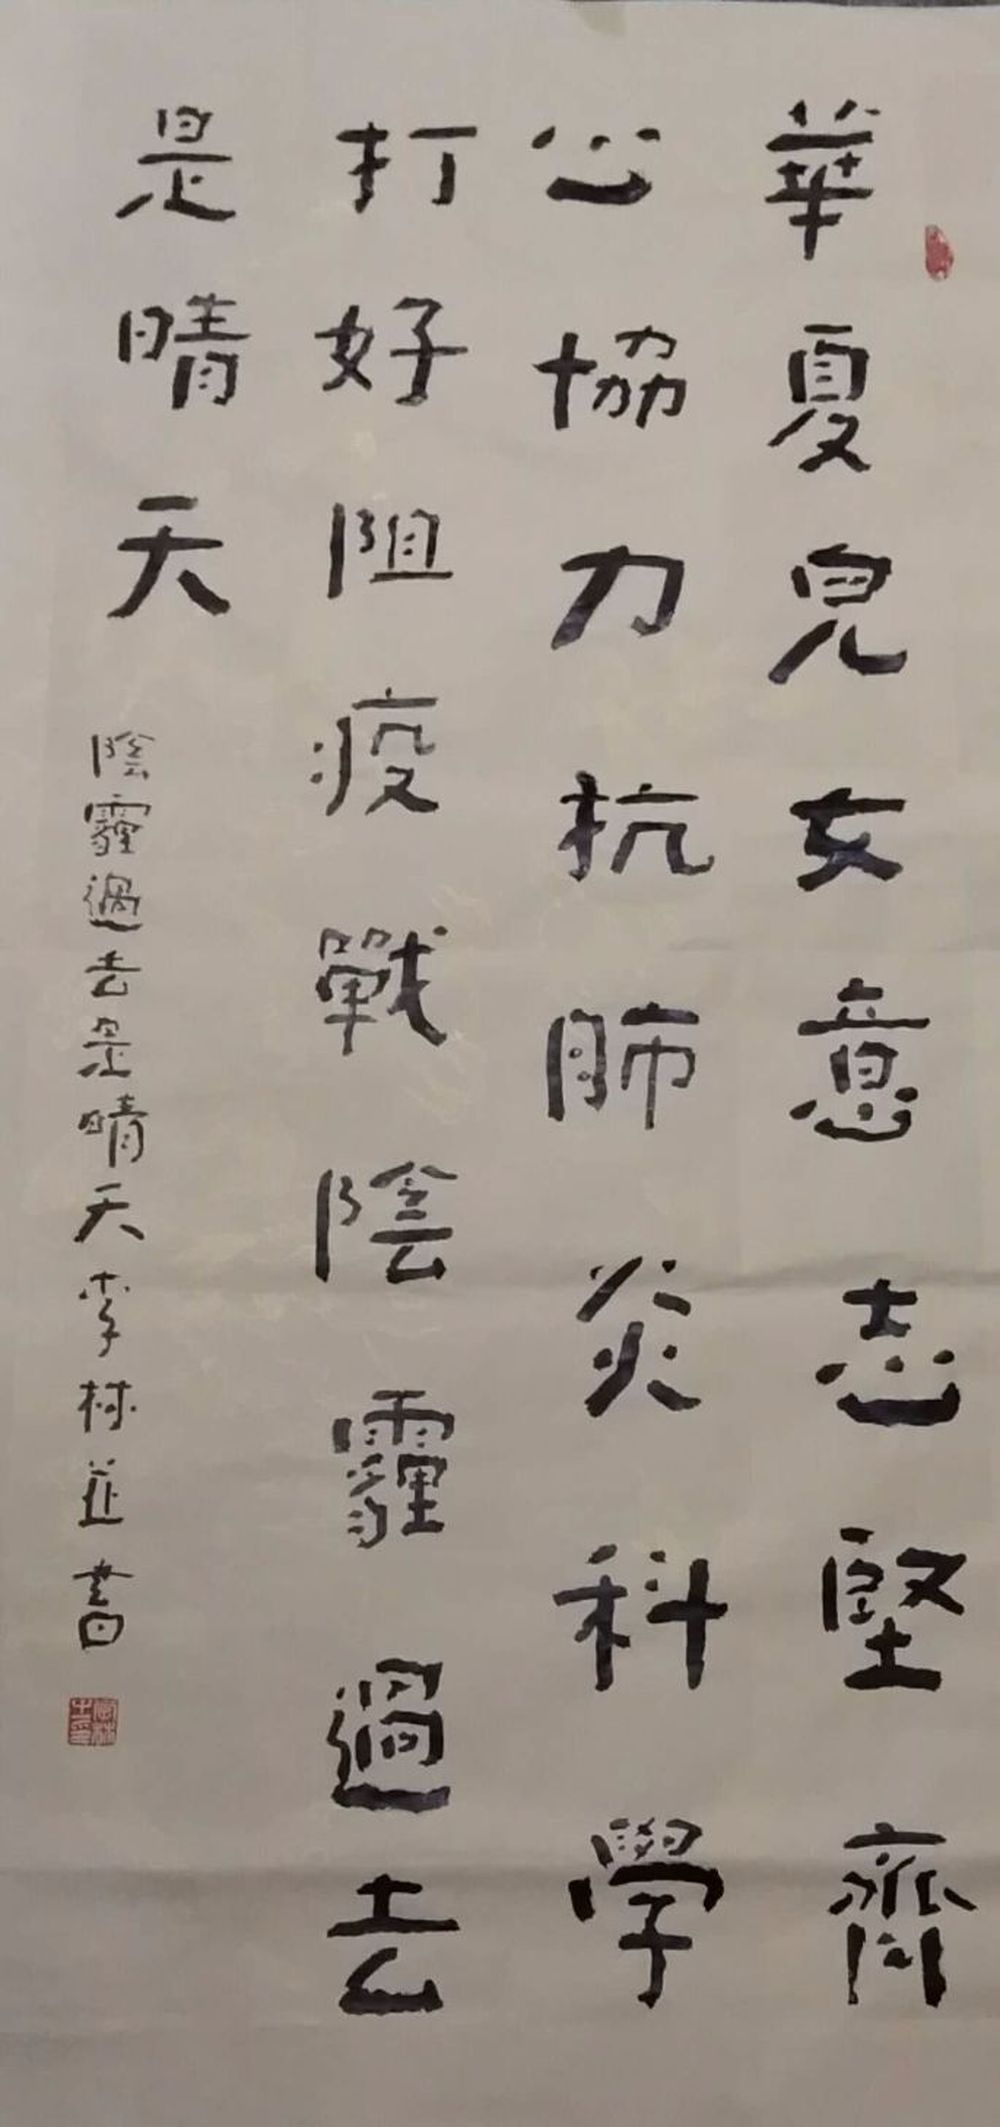 華夏兒女意志堅齊
心協力抗肺炎科學
打好阻疫戰陰霾過去
是晴天
陰霾過去是晴天李林並書